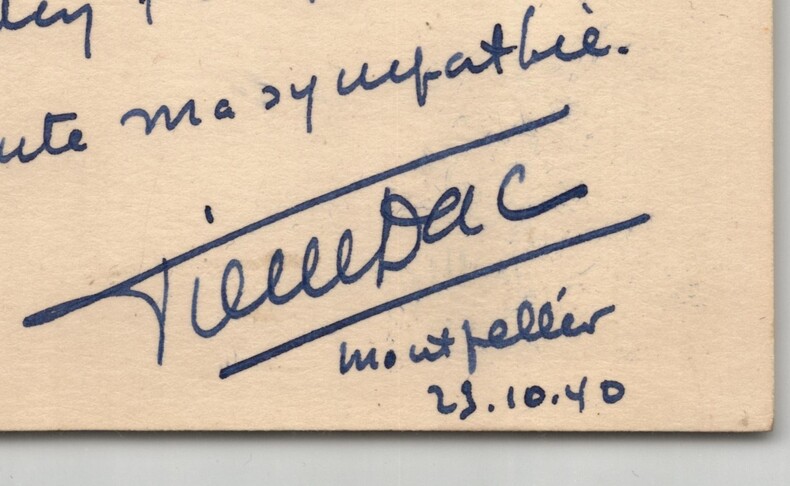 ma sympathie.
Pierre Dac
Montpellier
23.10.40